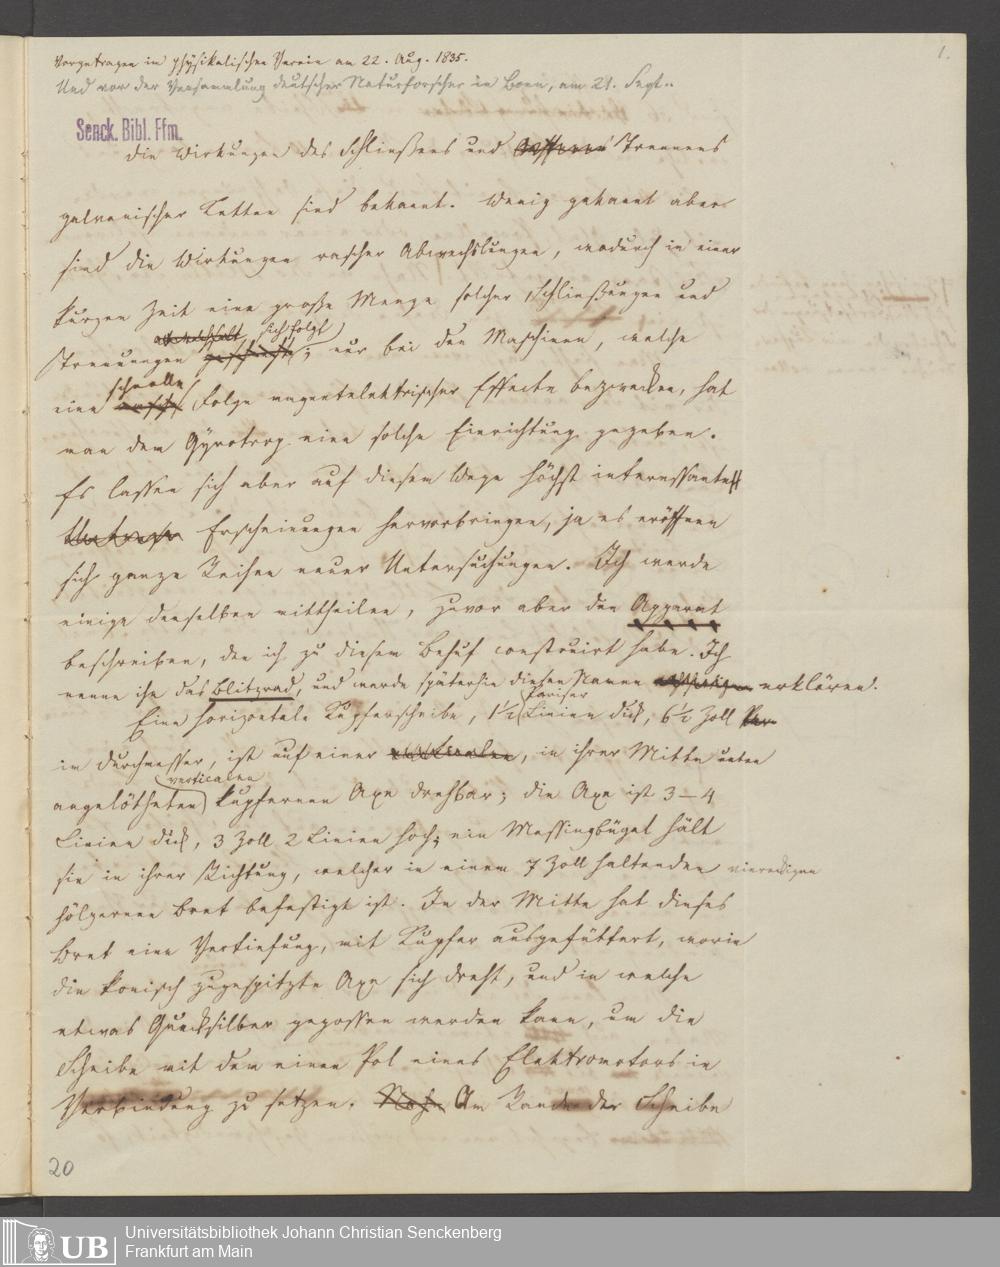 1.
Vorgetragen im physikalischen Verein am 22. Aug. 1835.
Und vor der Versammlung deutscher Naturforscher in Bonn, am 21. Sept..
Senck. Bibl. Ffm.
Die Wirkungen des Schließens und Trennens
galvanischer Ketten sind bekannt. Wenig gekannt aber
sind die Wirkungen rascher Abwechslungen, wodurch in einer
kurzen Zeit eine große Menge solcher Schließungen und
sich folgt
Trennungen ; nur bei den Maschinen, welche
schnelle
eine Folge magnetelektrischer Effecte bezwecken, hat
man dem Gyrotrop eine solche Einrichtung gegeben.
Es lassen sich aber auf diesem Wege höchst interessante
Erscheinungen hervorbringen, ja es eröffnen
sich ganze Reihen neuer Untersuchungen. Ich werde
einige derselben mittheilen, zuvor aber den Apparat
beschreiben, den ich zu diesem Behuf construirt habe. Ich
nenne ihn das Blitzrad, und werde späterhin diesen Namen erklären.
Pariser
Eine horizontale Kupferscheibe, 1½ Linien dick, 6½ Zoll
im Durchmesser, ist auf einer , in ihrer Mitte unten
verticalen
angelötheten kupfernen Axe drehbar; die Axe ist 3–4
Linien dick, 3 Zoll 2 Linien hoch; ein Messingbügel hält
sie in ihrer Richtung, welcher in einem 7 Zoll haltenden viereckigen
hölzernen Bret befestigt ist. In der Mitte hat dieses
Bret eine Vertiefung, mit Kupfer ausgefüttert, worin
die konisch zugespitzte Axe sich dreht, und in welche
etwas Quecksilber gegossen werden kann, um die
Scheibe mit dem einen Pol eines Elektromotors in
Verbindung zu setzen. Am Rande der Scheibe
20
UB
Universitätsbibliothek Johann Christian Senckenberg
Frankfurt am Main